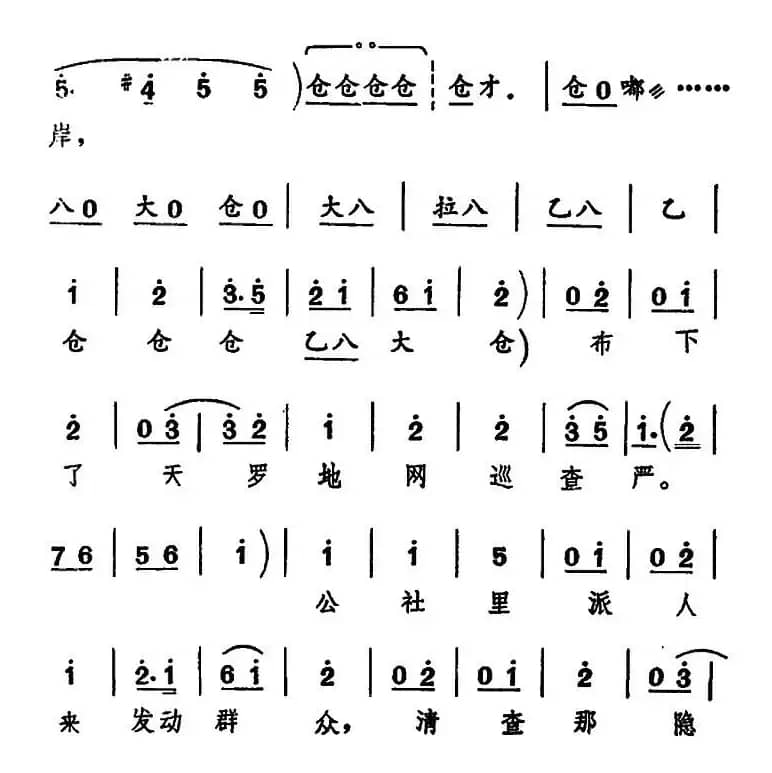 5. #4 5 5 ) 仓仓仓仓 仓才. | 仓0 嘟 ……
岸，
八0 大0 仓0 | 大八 | 拉八 | 乙八 | 乙 |
1 | 2 | 3.5 | 2 1 | 6 1 | 2 ) | 0 2 | 0 1 |
仓 仓 仓 乙八 大 仓) 布 下
2 | 0 3 | 3 2 | 1 | 2 | 2 | 3 5 | 1.( 2 |
了 天 罗 地 网 巡 查 严。
7 6 | 5 6 | 1 ) | 1 | 1 | 5 | 0 1 | 0 2 |
公 社 里 派 人
1 | 2.1 | 6 1 | 2 | 0 2 | 0 1 | 2 | 0 3 |
来 发动 群 众，清 查 那 隐